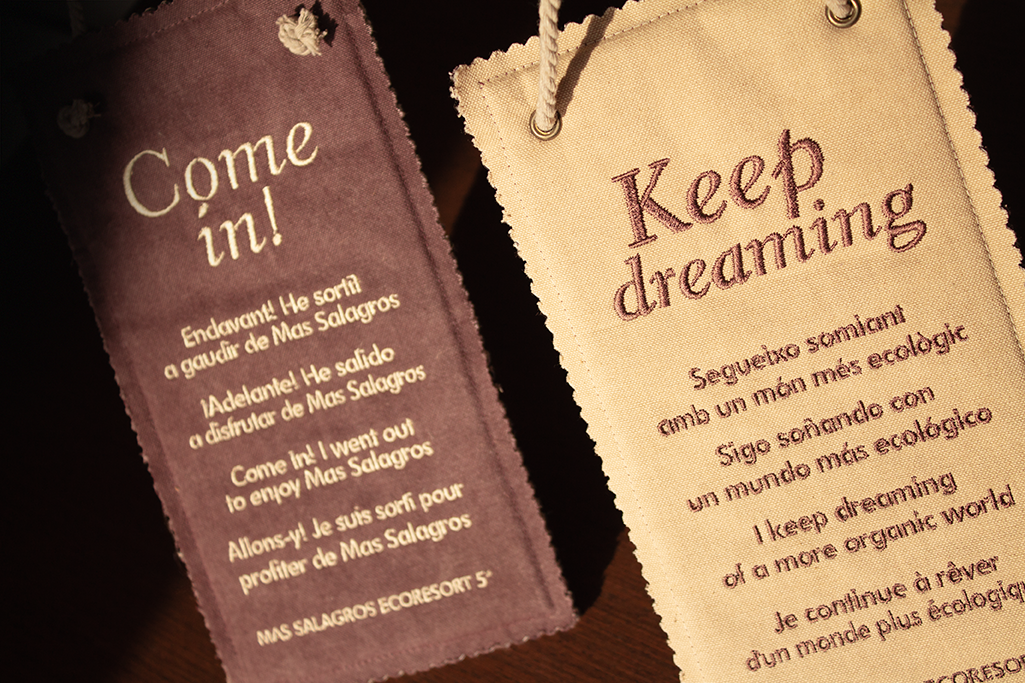 Come
in!
Endavant! He sortit
a gaudir de Mas Salagros
¡Adelante! He salido
a disfrutar de Mas Salagros
Come in! I went out
to enjoy Mas Salagros
Allons-y! Je suis sorti pour
profiter de Mas Salagros
MAS SALAGROS ECORESORT 5*
Keep
dreaming
Segueixo somiant
amb un món més ecològic
Sigo soñando con
un mundo más ecológico
I keep dreaming
of a more organic world
Je continue à rêver
d'un monde plus